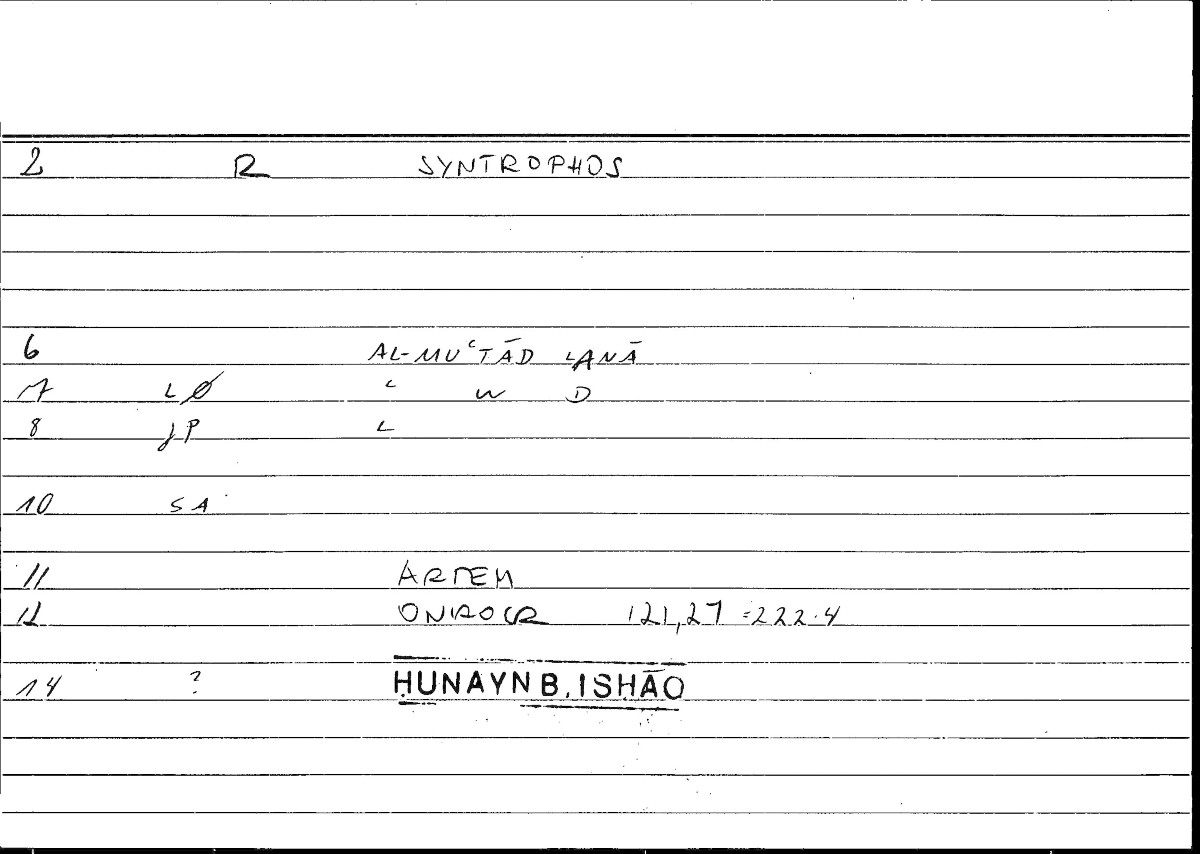 2 R SYNTROPHOS
6 AL-MUʿTĀD LANĀ
7 LØ ʿ W D
8 JP L
10 SA
11 ARTEM
12 ONIROCR 121,27 = 222.4
14 ? HUNAYN B. ISHĀQ